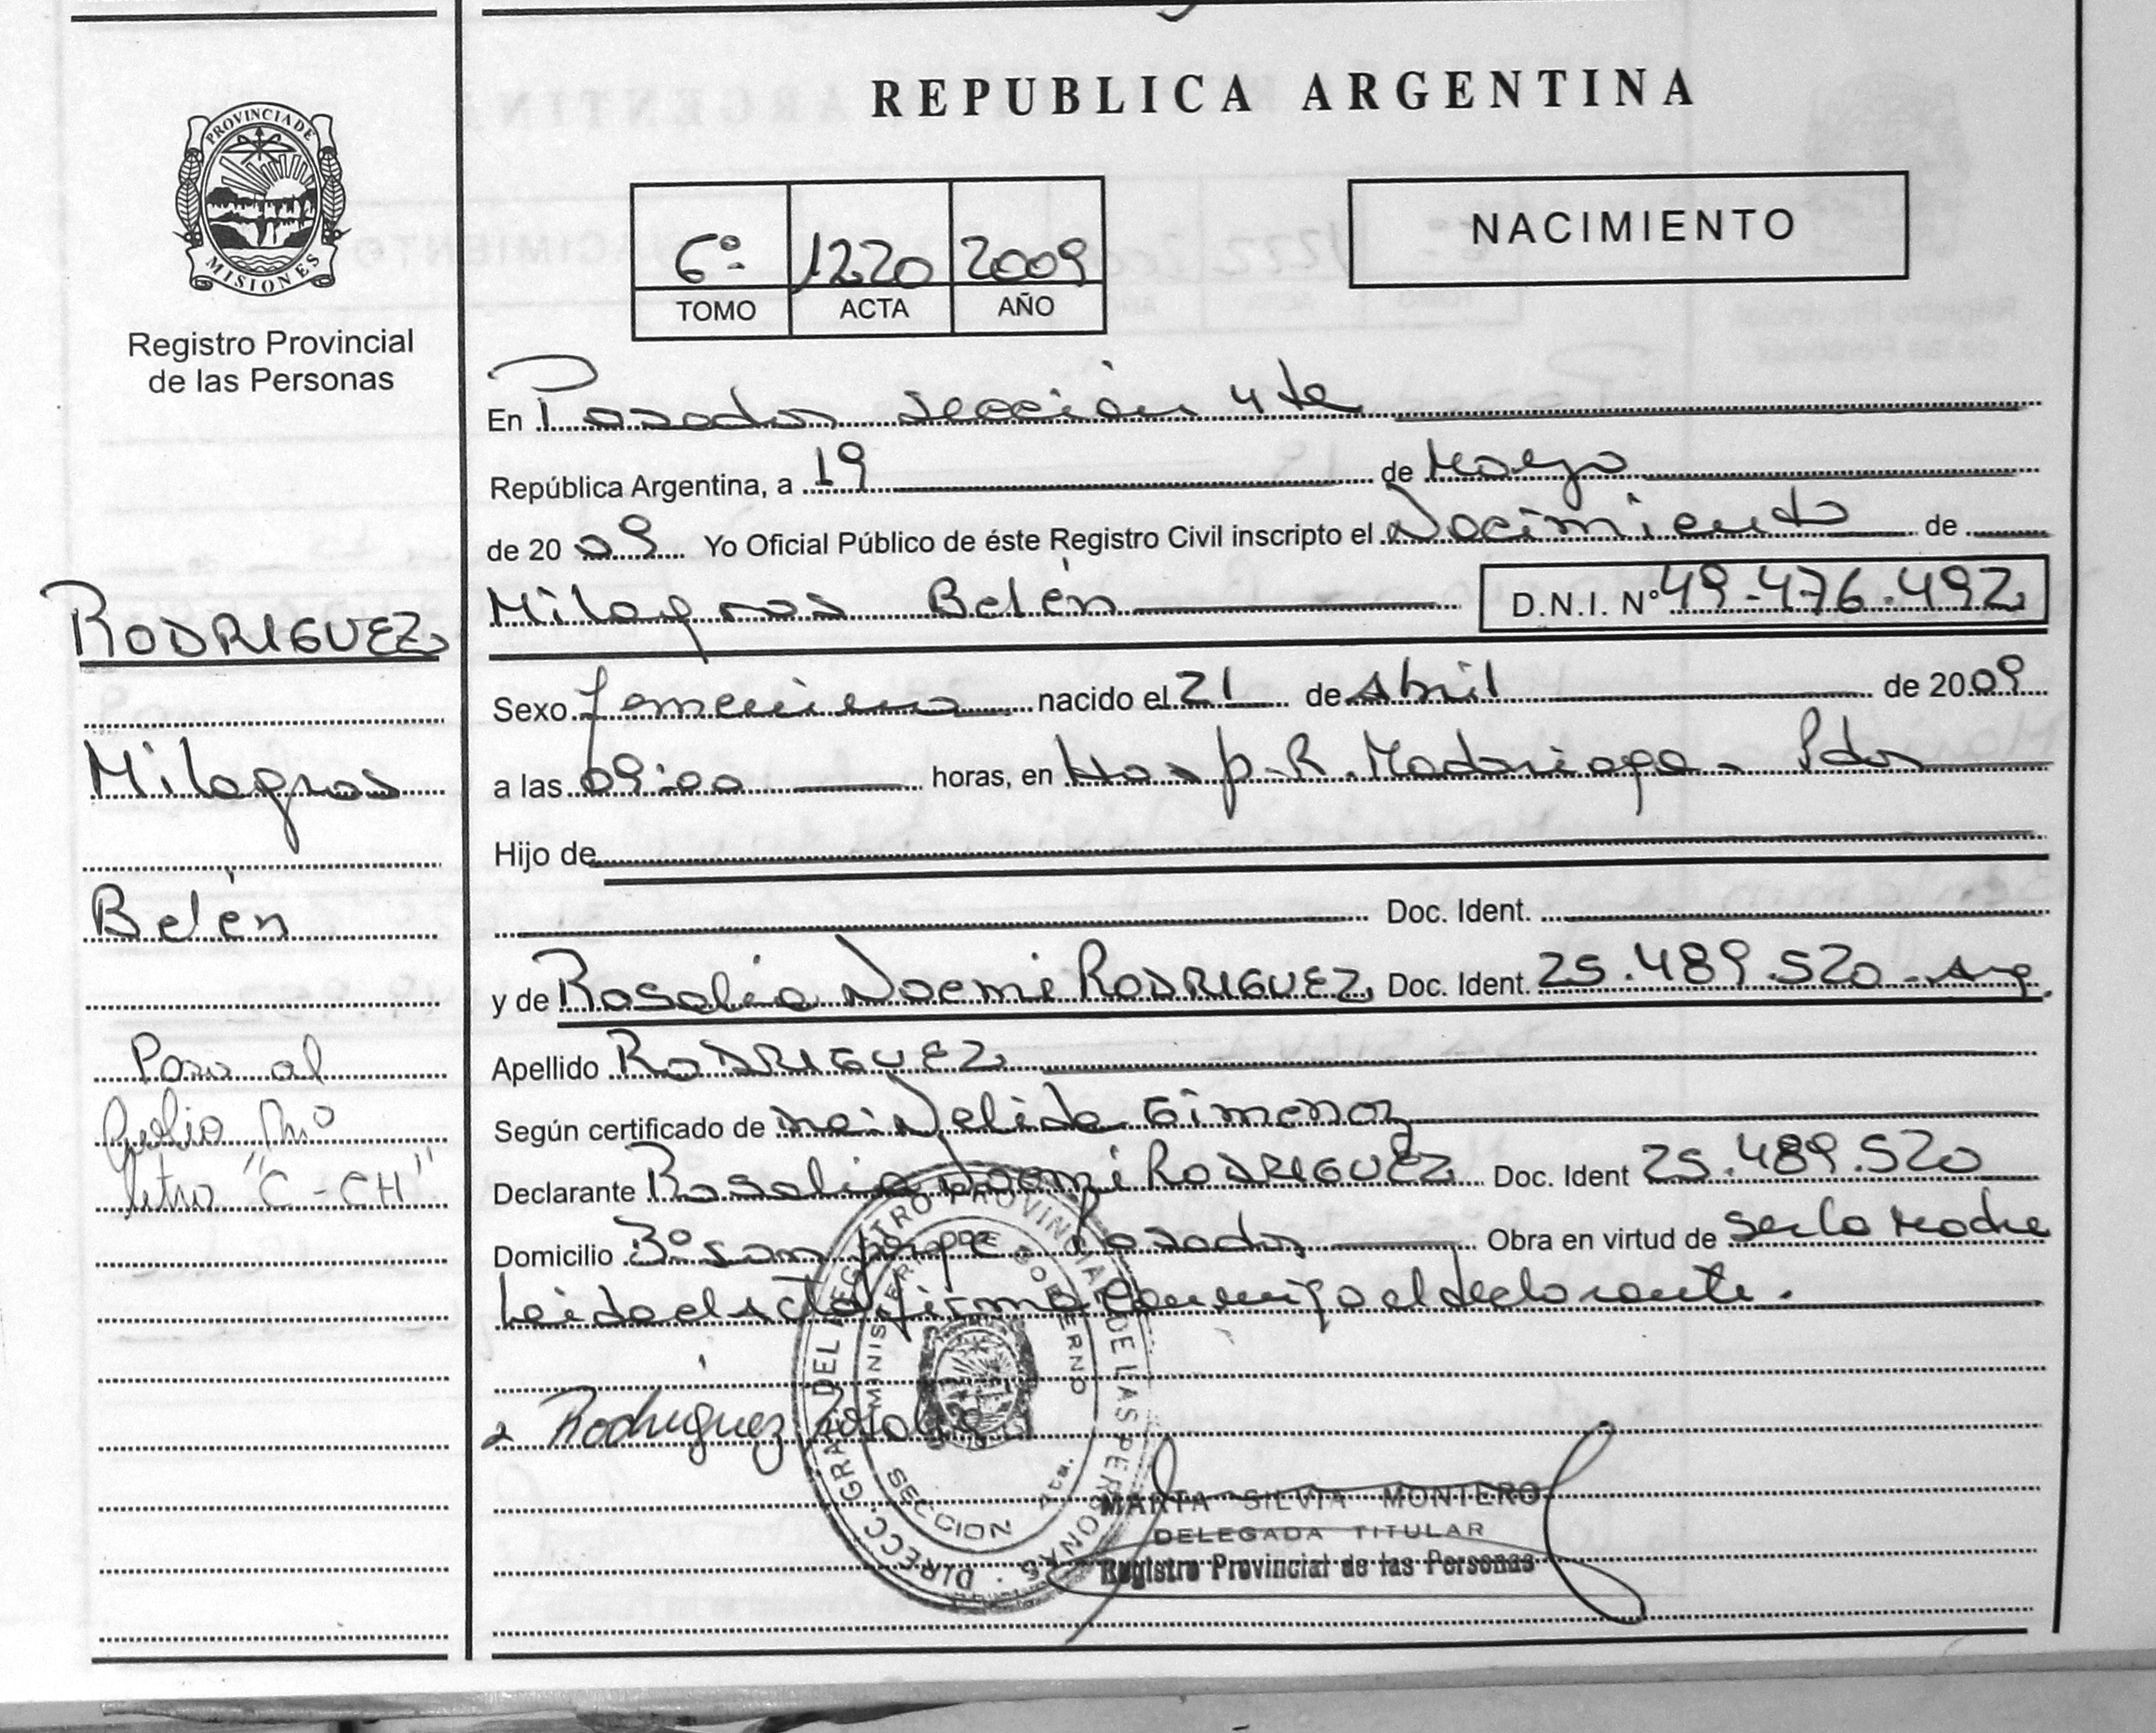 REPUBLICA ARGENTINA
PROVINCIA DE
MISIONES
Registro Provincial
de las Personas
6º 1220 2009
TOMO ACTA AÑO
NACIMIENTO
En Posadas sección 4ta
República Argentina, a 19 de Mayo
de 2009 Yo Oficial Público de éste Registro Civil inscripto el Nacimiento de
Milagros Belén D.N.I. Nº 49.476.492
Sexo femenino nacido el 21 de Abril de 2009
a las 09:00 horas, en Hosp. R. Madariaga - Pdas
Hijo de
Doc. Ident.
y de Rosalia Noemi RODRIGUEZ Doc. Ident. 25.489.520 - Arg.
Apellido RODRIGUEZ
Según certificado de Nelida Gimenez
Declarante Rosalia Noemi RODRIGUEZ Doc. Ident 25.489.520
Domicilio Bº San Posadas Obra en virtud de ser la Madre
Leida el acta firma conmigo el declarante.
Rodriguez Rosalia
RODRIGUEZ
Milagros
Belén
Paso al
letra "C - CH"
DIRECC. GRAL. DEL REGISTRO PROVINCIAL DE LAS PERSONAS
MINISTERIO DE GOBIERNO
SECCION 4ta.
MARTA SILVIA MONTERO
DELEGADA TITULAR
Registro Provincial de las Personas